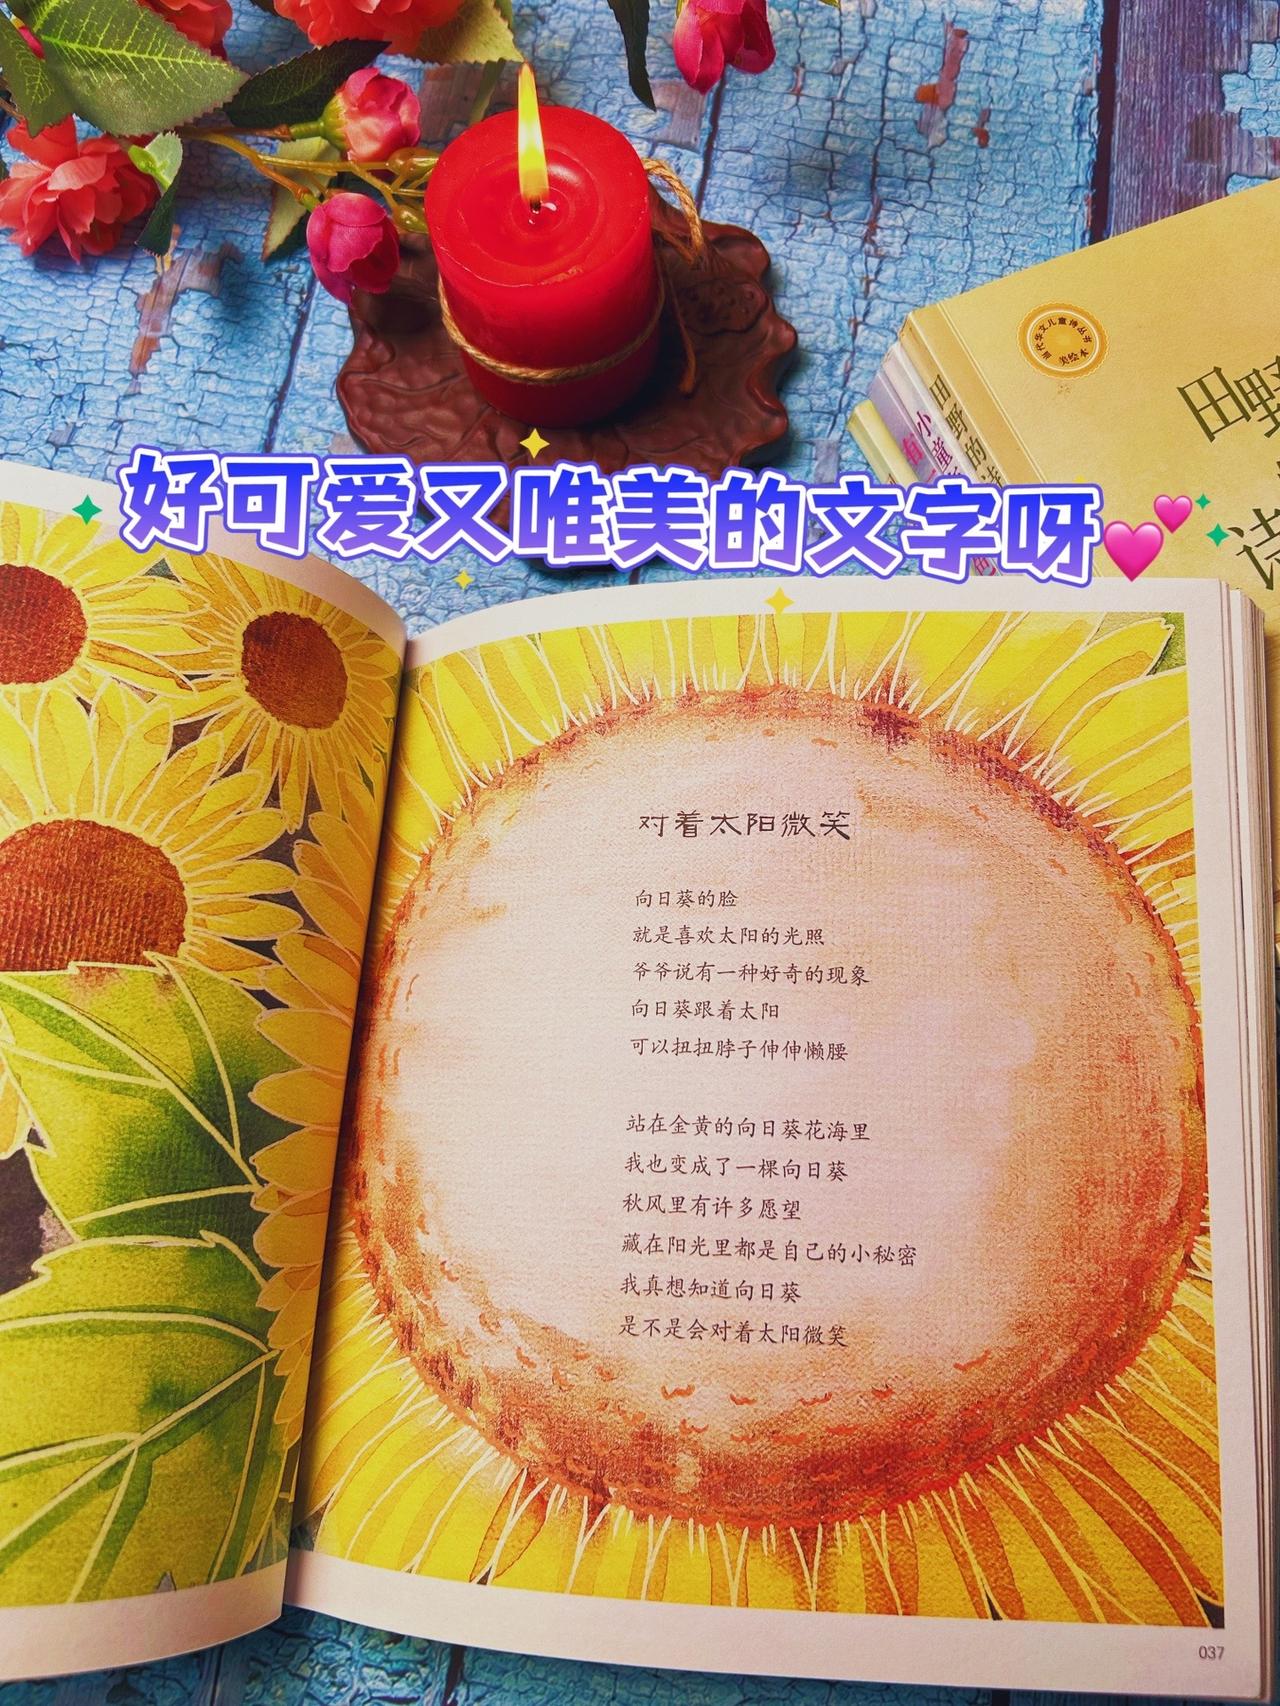 现代华文儿童诗丛书
美绘本
田野
诗
田野的诗
小童
有
好可爱又唯美的文字呀
对着太阳微笑
向日葵的脸
就是喜欢太阳的光照
爷爷说有一种好奇的现象
向日葵跟着太阳
可以扭扭脖子伸伸懒腰
站在金黄的向日葵花海里
我也变成了一棵向日葵
秋风里有许多愿望
藏在阳光里都是自己的小秘密
我真想知道向日葵
是不是会对着太阳微笑
037